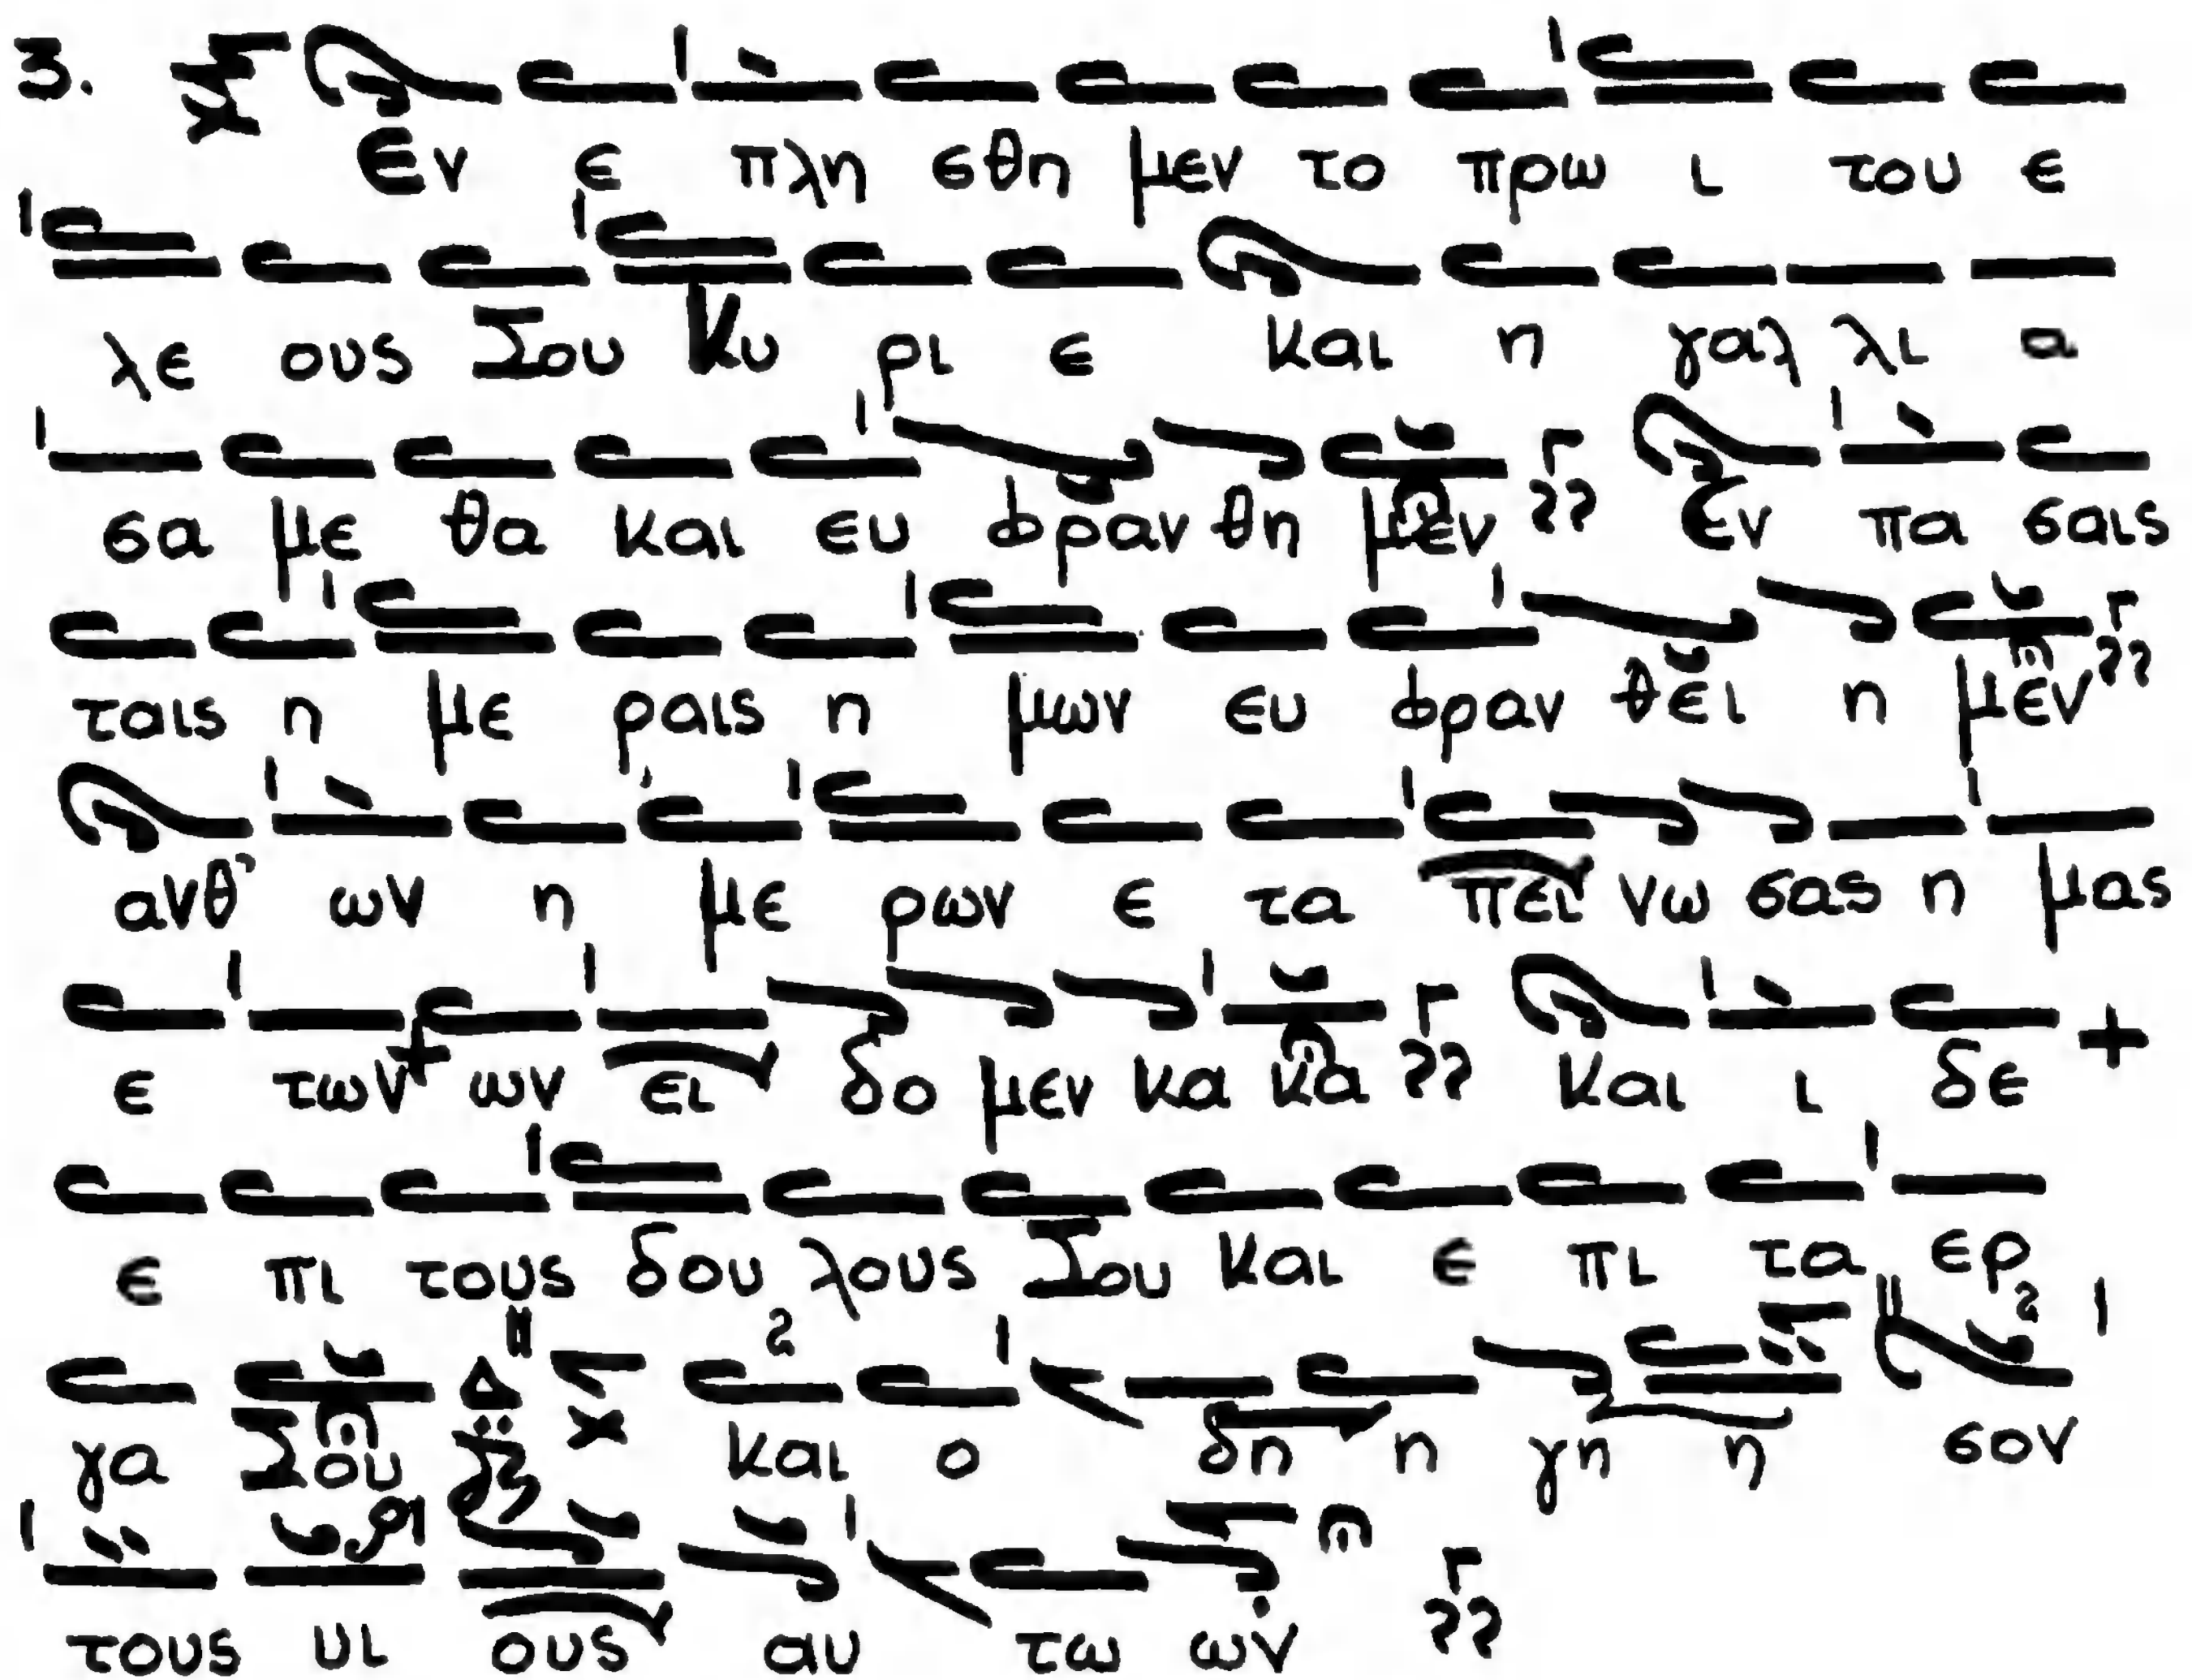 3. Εν ε πλη σθη μεν το πρω ι του ε
λε ους Σου Κυ ρι ε και η γαλ λι α
σα με θα και ευ φραν θη μεν Εν πα σαις
ταις η με ραις η μων ευ φραν θει η μεν
ανθ' ων η με ρων ε τα πει νω σας η μας
ε των ων ει δο μεν κα κα Και ι δε
ε πι τους δου λους Σου Και ε πι τα ερ
γα Σου Δ και ο δη η γη η σον
τους υι ους αυ τω ων